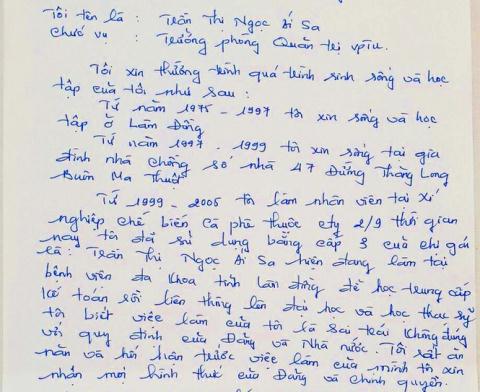 Tôi tên là : Trần Thị Ngọc Ái Sa
Chức vụ : Trưởng phòng Quản trị VPTU.
Tôi xin tường trình quá trình sinh sống và học
tập của tôi như sau :
Từ năm 1975 - 1997 tôi xin sống và học
tập ở Lâm Đồng
Từ năm 1997 - 1999 tôi xin sống tại gia
đình nhà chồng số nhà 47 Đường Thăng Long
Buôn Ma Thuột
Từ 1999 - 2005 tôi làm nhân viên tại xí
nghiệp chế biến cà phê thuộc cty 2/9 thời gian
này tôi đã sử dụng bằng cấp 3 của chị gái
là : Trần Thị Ngọc Ái Sa hiện đang làm tại
bệnh viện đa khoa tỉnh Lâm Đồng để học trung cấp
kế toán rồi liên thông lên đại học và học thạc sỹ
tôi biết việc làm của tôi là sai trái không đúng
với quy định của Đảng và Nhà nước. Tôi rất ăn
năn và hối hận trước việc làm của mình tôi xin
nhận mọi hình thức của Đảng và chính quyền.